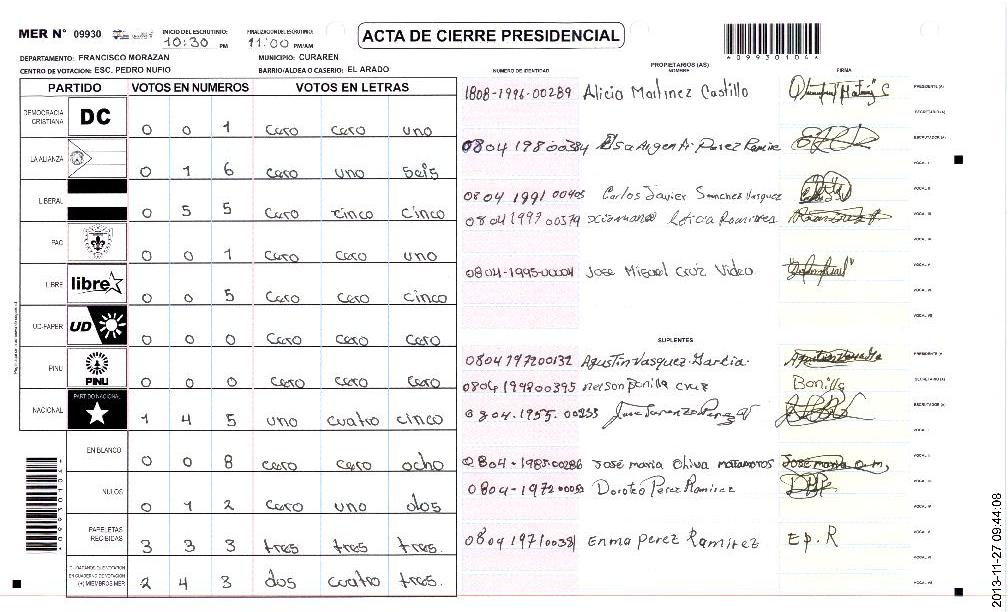 MER N° 09930 INICIO DEL ESCRUTINIO: 10:30 PM FINALIZACION DEL ESCRUTINIO: 11:00 PM/AM
ACTA DE CIERRE PRESIDENCIAL
*09930104*
DEPARTAMENTO: FRANCISCO MORAZAN MUNICIPIO: CURAREN
CENTRO DE VOTACION: ESC. PEDRO NUFIO BARRIO/ALDEA O CASERIO: EL ARADO
NUMERO DE IDENTIDAD PROPIETARIOS (AS) NOMBRE FIRMA
PARTIDO VOTOS EN NUMEROS VOTOS EN LETRAS
DEMOCRACIA CRISTIANA DC 0 0 1 cero cero uno
LA ALIANZA 0 1 6 cero uno seis
LIBERAL 0 5 5 cero cinco cinco
PAC 0 0 1 cero cero uno
LIBRE libre 0 0 5 cero cero cinco
UD-FAPER UD 0 0 0 cero cero cero
PINU PINU 0 0 0 cero cero cero
NACIONAL PARTIDO NACIONAL 1 4 5 uno cuatro cinco
EN BLANCO 0 0 8 cero cero ocho
NULOS 0 1 2 cero uno dos
PAPELETAS RECIBIDAS 3 3 3 tres tres tres.
CIUDADANOS QUE VOTARON EN CUADERNO DE VOTACION (+) MIEMBROS MER 2 4 3 dos cuatro tres.
1808-1996-00289 Alicia Martinez Castillo PRESIDENTE (A)
SECRETARIO (A)
0804 1980 00384 Elsa Argen A. Perez ESCRUTADOR (A)
VOCAL I
0804 1991 00405 Carlos Javier Sanchez Vasquez VOCAL II
0804 1997 00379 leticia Ramirez VOCAL III
VOCAL IV
0804-1995-00004 Jose Miguel Cruz Video VOCAL V
VOCAL VI
VOCAL VII
SUPLENTES
0804 1972 00132 Agustin Vasquez Garcia. PRESIDENTE (A)
0804 1992 00395 nelson Bonilla cruz Bonilla SECRETARIO (A)
0804.1955.00233 ESCRUTADOR (A)
VOCAL I
0804-1985-00286 José maria Oliva matamoros José maria O. m, VOCAL II
0804-1972 Doroteo Perez Ramirez VOCAL III
VOCAL IV
0804 1971 00381 Enma perez Ramirez Ep. R VOCAL V
VOCAL VI
VOCAL VII
2013-11-27 09:44:08